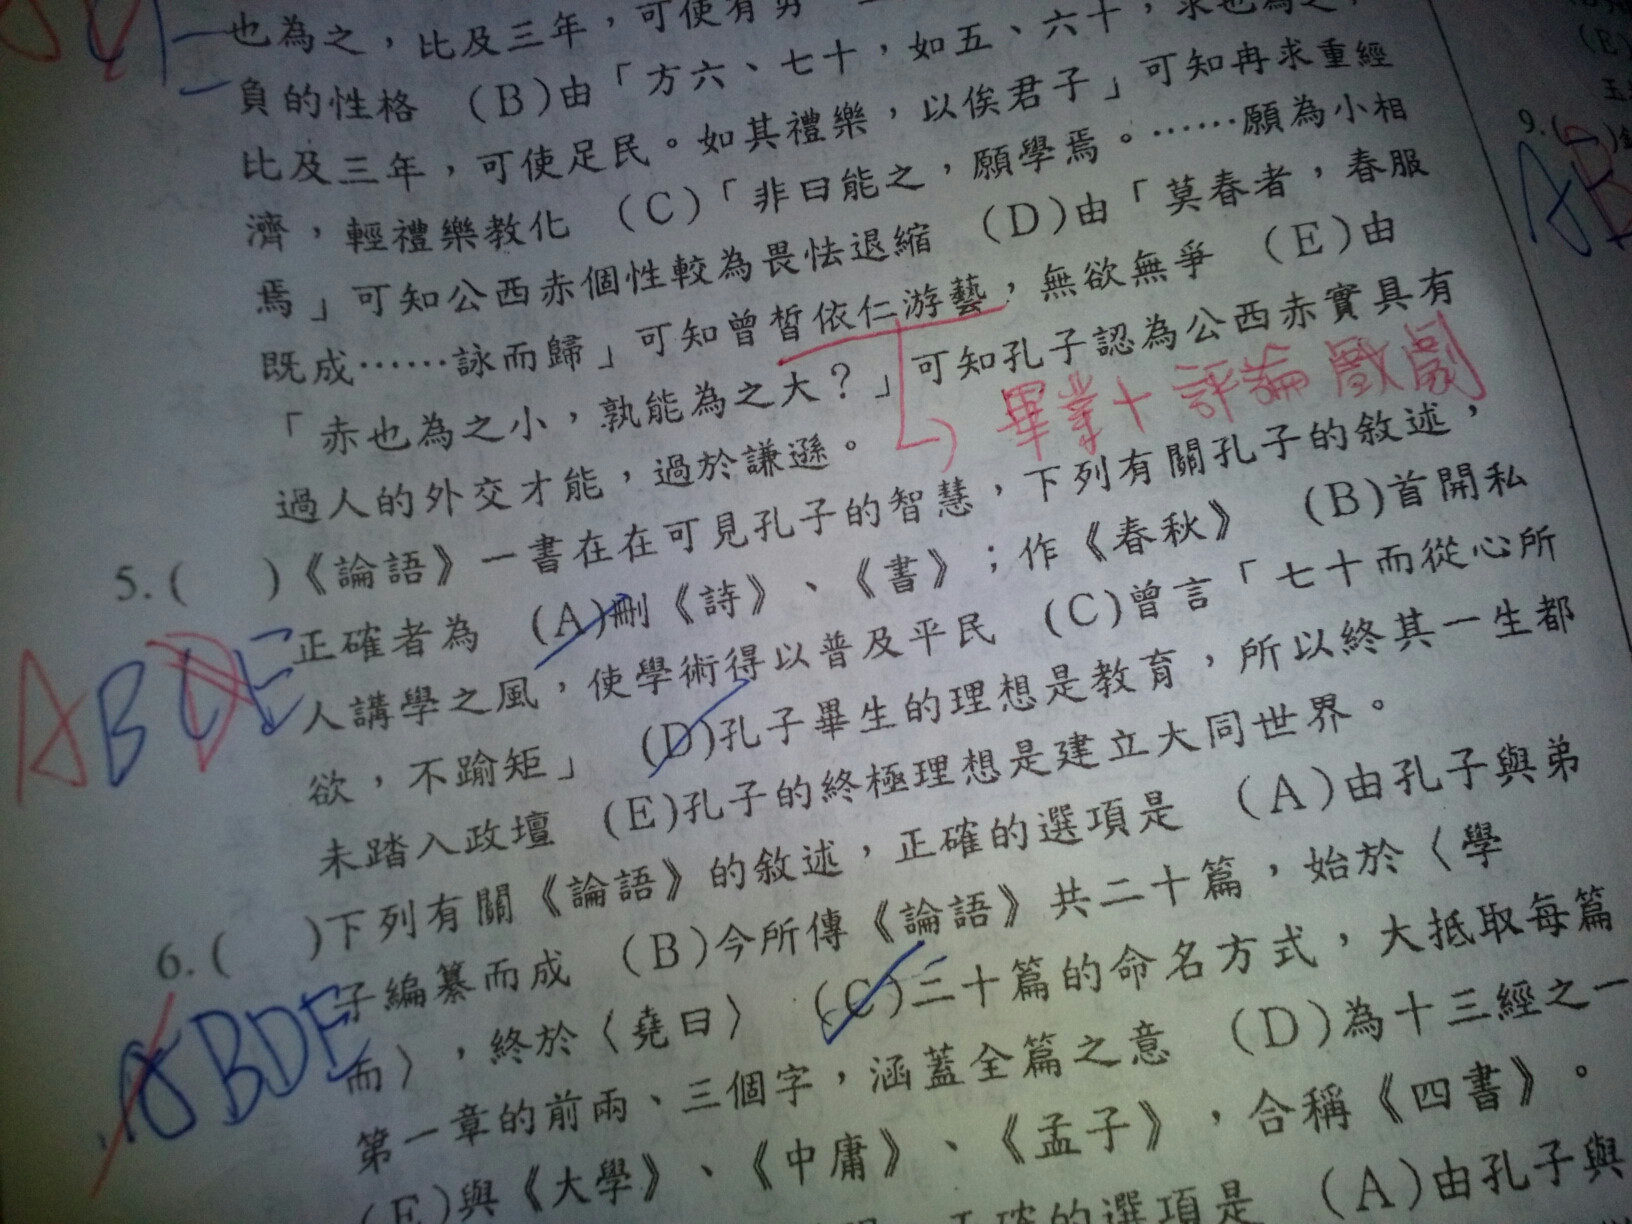 也為之，比及三年，可使有勇
負的性格　(B)由「方六、七十，如五、六十，求也為之，
比及三年，可使足民。如其禮樂，以俟君子」可知冉求重經
濟，輕禮樂教化　(C)「非曰能之，願學焉。……願為小相
焉」可知公西赤個性較為畏怯退縮　(D)由「莫春者，春服
既成……詠而歸」可知曾皙依仁游藝，無欲無爭　(E)由
「赤也為之小，孰能為之大？」可知孔子認為公西赤實具有
過人的外交才能，過於謙遜。
畢業十評論戲劇
5.(　)《論語》一書在在可見孔子的智慧，下列有關孔子的敘述，
正確者為　(A)刪《詩》、《書》；作《春秋》　(B)首開私
人講學之風，使學術得以普及平民　(C)曾言「七十而從心所
欲，不踰矩」　(D)孔子畢生的理想是教育，所以終其一生都
未踏入政壇　(E)孔子的終極理想是建立大同世界。
6.(　)下列有關《論語》的敘述，正確的選項是　(A)由孔子與弟
子編纂而成　(B)今所傳《論語》共二十篇，始於〈學
而〉，終於〈堯曰〉　(C)二十篇的命名方式，大抵取每篇
第一章的前兩、三個字，涵蓋全篇之意　(D)為十三經之一
(E)與《大學》、《中庸》、《孟子》，合稱《四書》。
正確的選項是　(A)由孔子與
ABDE
9.(
AB